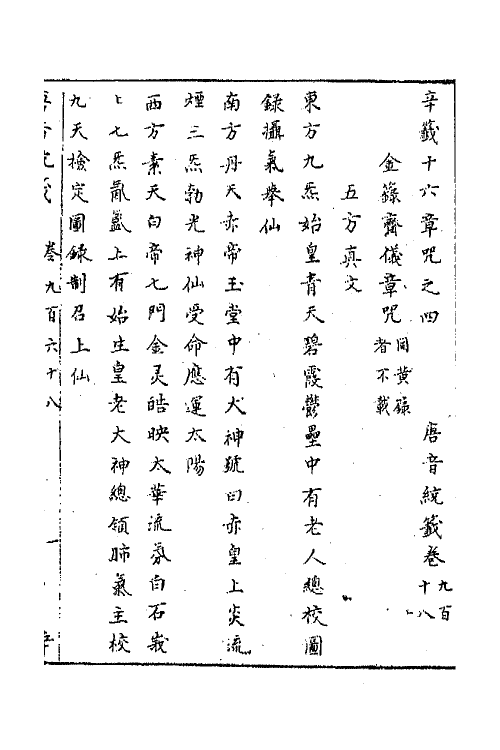 辛籤十六章咒之四　唐音統籤卷九百
十八
金籙齋儀章咒同黄籙
者不載
五方真文
東方九炁始皇青天碧霞鬱壘中有老人總校圖
錄攝氣舉仙
南方丹天赤帝玉堂中有大神號曰赤皇上炎流
煙三炁勃光神仙受命應運太陽
西方素天白帝七門金灵皓映太華流氛白石峩
七炁氤氳上有始生皇老大神總領肺氣主校
九天檢定圖錄制召上仙
卷九百六十八